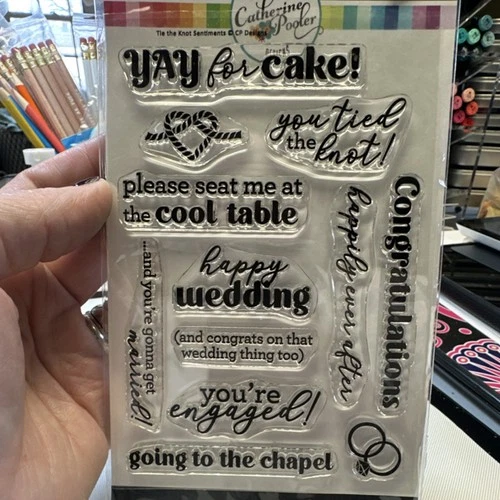 Catherine
Pooler
DESIGNS
Tie the Knot Sentiments © CP Designs
YAY for cake!
you tied
the knot!
please seat me at
the cool table
happily ever after
Congratulations
...and you're gonna get
married!
happy
wedding
(and congrats on that
wedding thing too)
you're
engaged!
going to the chapel